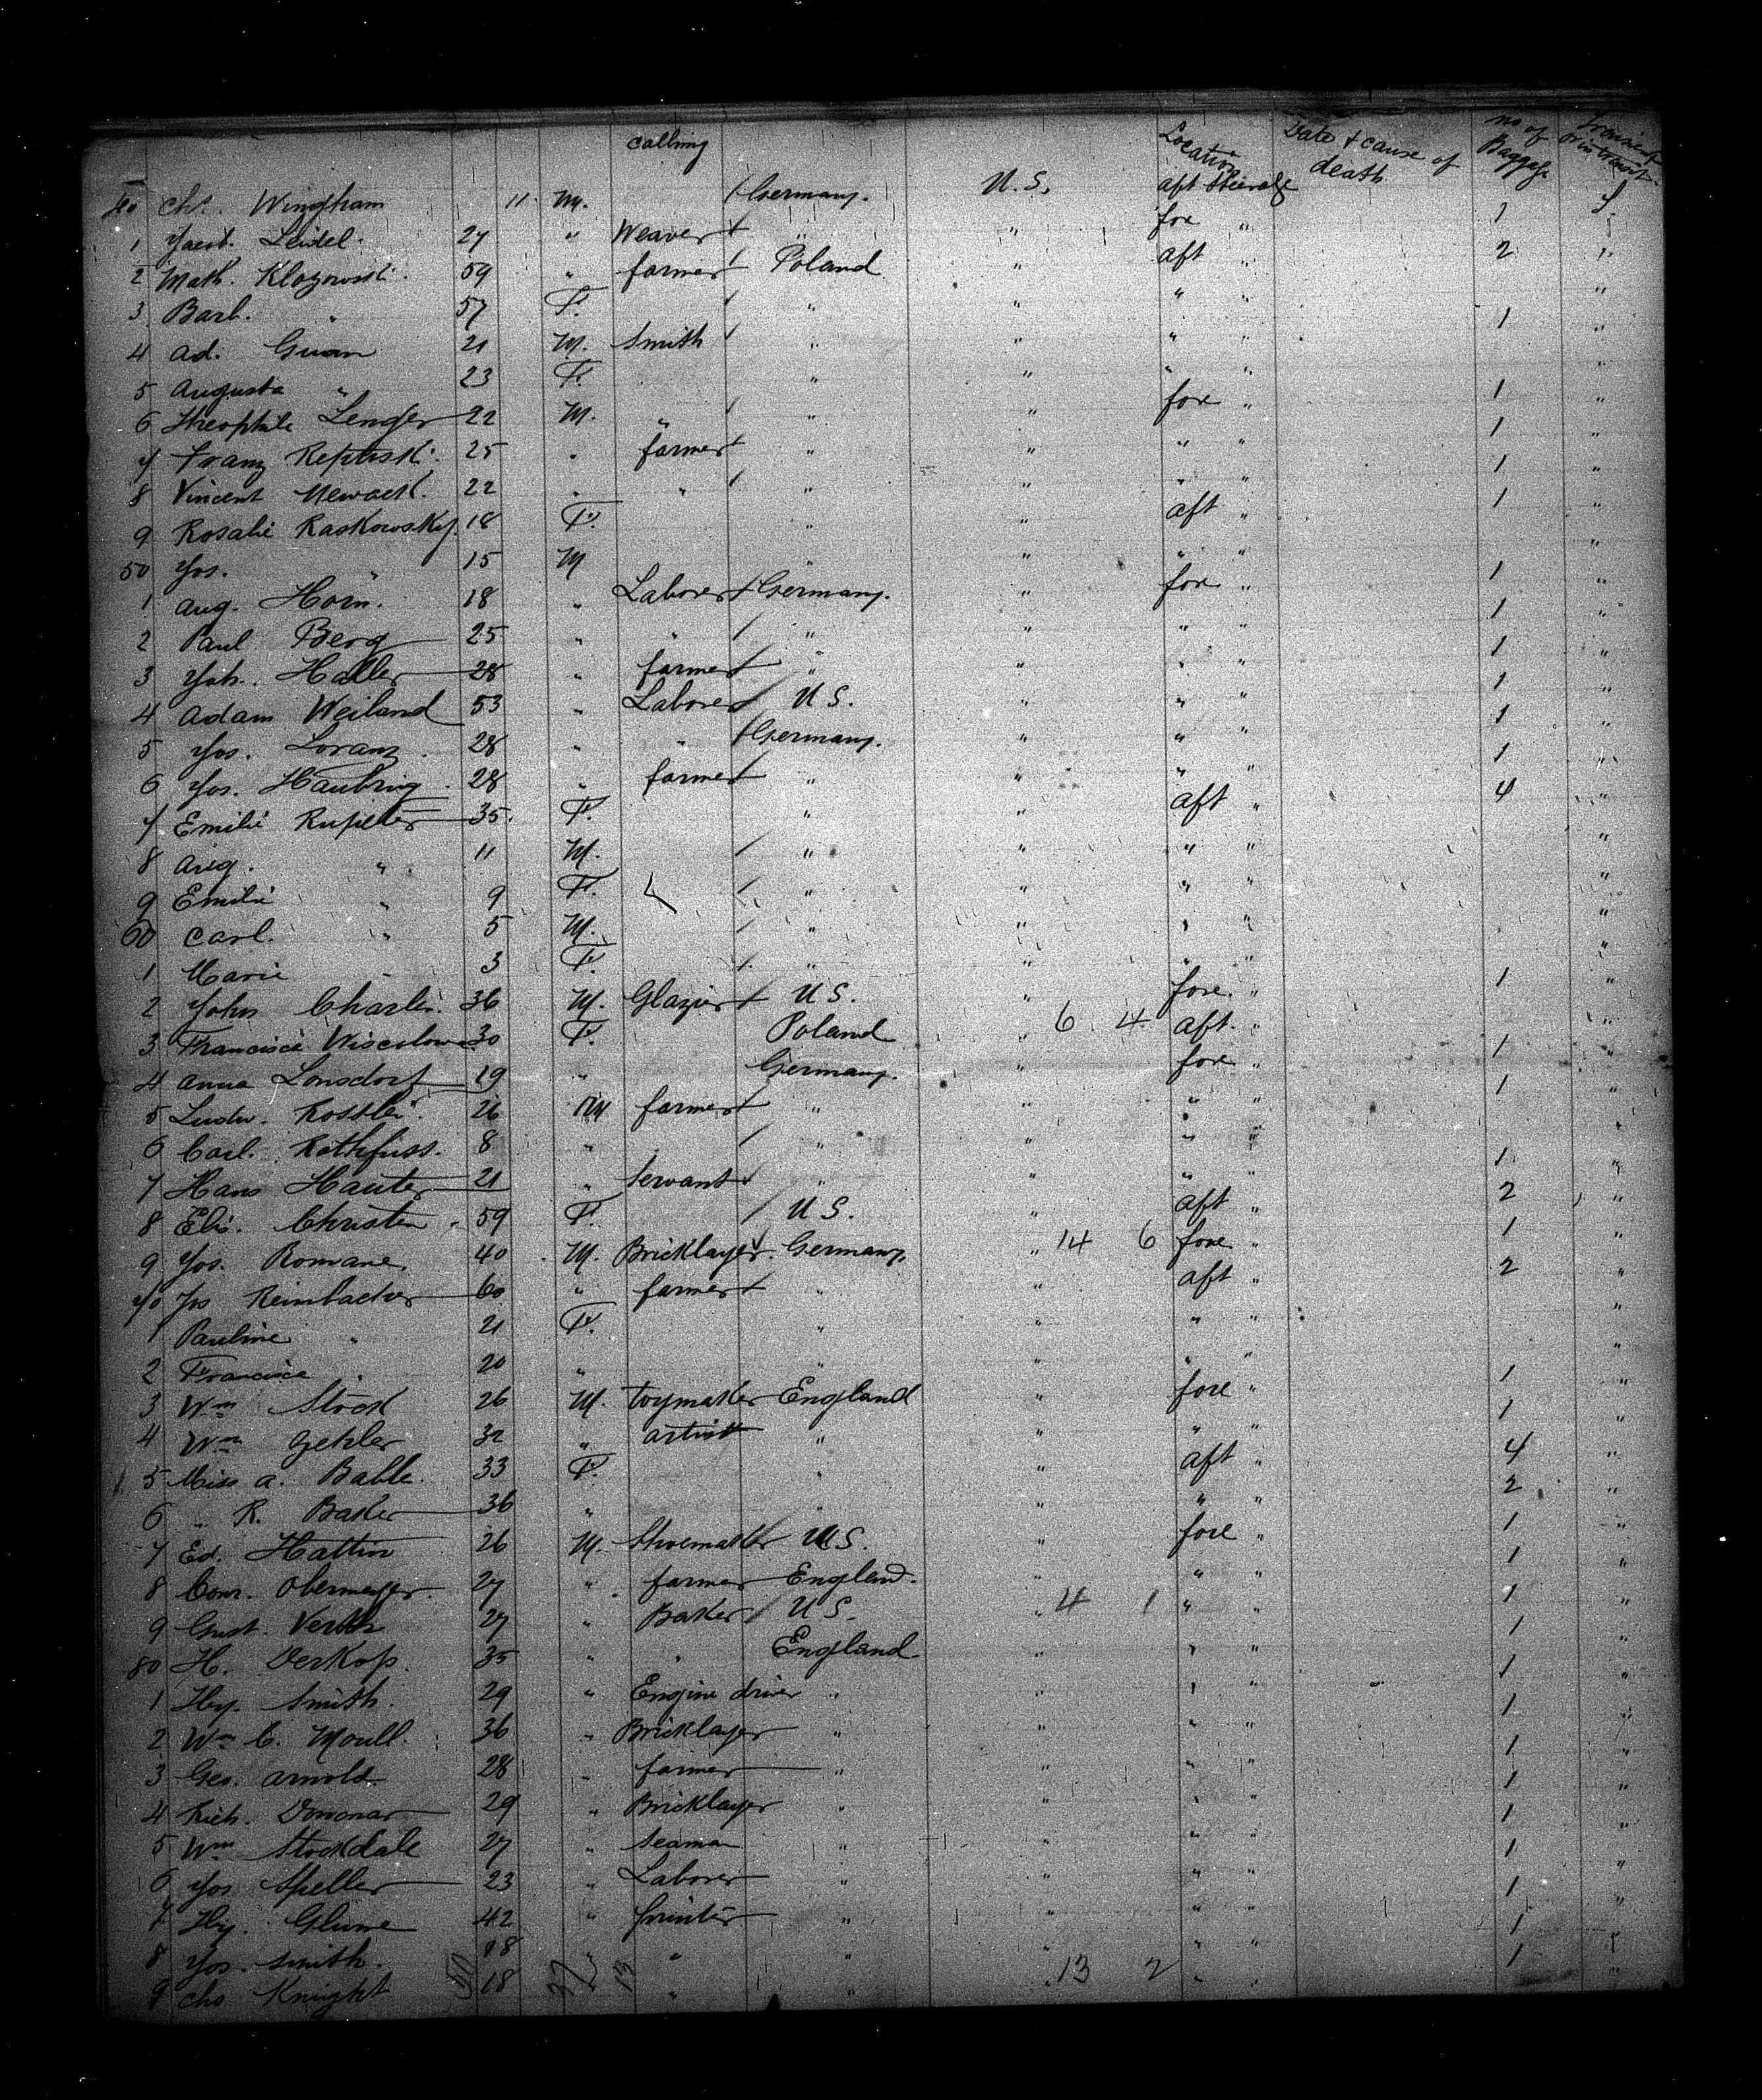 calling Location Date + cause of death no of Baggage
40 Chs. Wingham 11 M. Germany. U.S. aft Steerage
1 Jacob. Leidel. 27 " Weaver " " fore " 1 "
2 Math. 59 " farmer Poland " aft " 2 "
3 Barb. " 57 F. " " " " "
4 Ad. Guan 21 M. Smith " " " " 1 "
5 Augusta " 23 F. " " " " "
6 Theophile Lenger 22 M. " " " fore " 1 "
7 Franz 25 " farmer " " " " 1 "
8 Vincent 22 " " " " " " 1 "
9 Rosalie Raskowsky. 18 F. " " aft " 1 "
50 Jos. " 15 M " " " " "
1 Aug. Horn. 18 " Laborer Germany. " fore " 1 "
2 Paul Berg 25 " " " " " " 1 "
3 Joh. Haller 28 " farmer " " " " 1 "
4 Adam Weiland 53 " Laborer U S. " " " 1 "
5 Jos. Loranz 28 " " Germany. " " " 1 "
6 Jos. Haubring 28 " farmer " " " " 1 "
7 Emilie 35. F. " " aft " 4 "
8 Aug. " 11 M. " " " " "
9 Emilie " 9 F. " " " " "
60 Carl. " 5 M. " " " " "
1 Marie " 3 F. " " " " "
2 John Charles. 36 M. Glazier U S. " fore. " 1 "
3 30 F. Poland " 6 4 aft. " "
4 Anna Lonsdorf 19 " Germany. " fore " 1 "
5 Ludw. 26 M farmer " " " " 1 "
6 Carl. Rothfuss. 8 " " " " " "
7 Hans Hauter 21 " Servant " " " " 1 "
8 Elis. Christen 59 F. U S. " aft " 2 "
9 Jos. Romane. 40 M. Bricklayer. Germany. " 14 6 fore " 1 "
70 Jos Reinbacher 60 " farmer " " aft " 2 "
1 Pauline " 21 F. " " " " "
2 " 20 " " " " " "
3 Wm Stock 26 M. toymaker England " fore " 1 "
4 Wm Gehler 32 " artist " " " " 1 "
5 Miss A. 33 F. " " aft " 4 "
6 " R. Baker 36 " " " " " 2 "
7 Ed. Hattin 26 M. Shoemaker U S. " fore " 1 "
8 Conr. Obermeyer. 27 " farmer England. " " " 1 "
9 Gust. Verth 27 " Baker U S. " 4 1 " " 1 "
80 H. Derkop. 35 " " England " " " 1 "
1 Hy. Smith. 29 " Engine driver " " " " 1 "
2 Wm C. Moull. 36 " Bricklayer " " " " 1 "
3 Geo. Arnold 28 " farmer " " " " 1 "
4 Rich. Donovan 29 " Bricklayer " " " " 1 "
5 Wm Stockdale 27 " Seaman " " " " 1 "
6 Jos Speller 23 " Laborer " " " " 1 "
7 Hy. Glume 42 " printer " " " " 1 "
8 Jos. Smith. 18 " " " " " " 1 "
9 Chs Knight 18 " " " " 13 2 " " 1 "